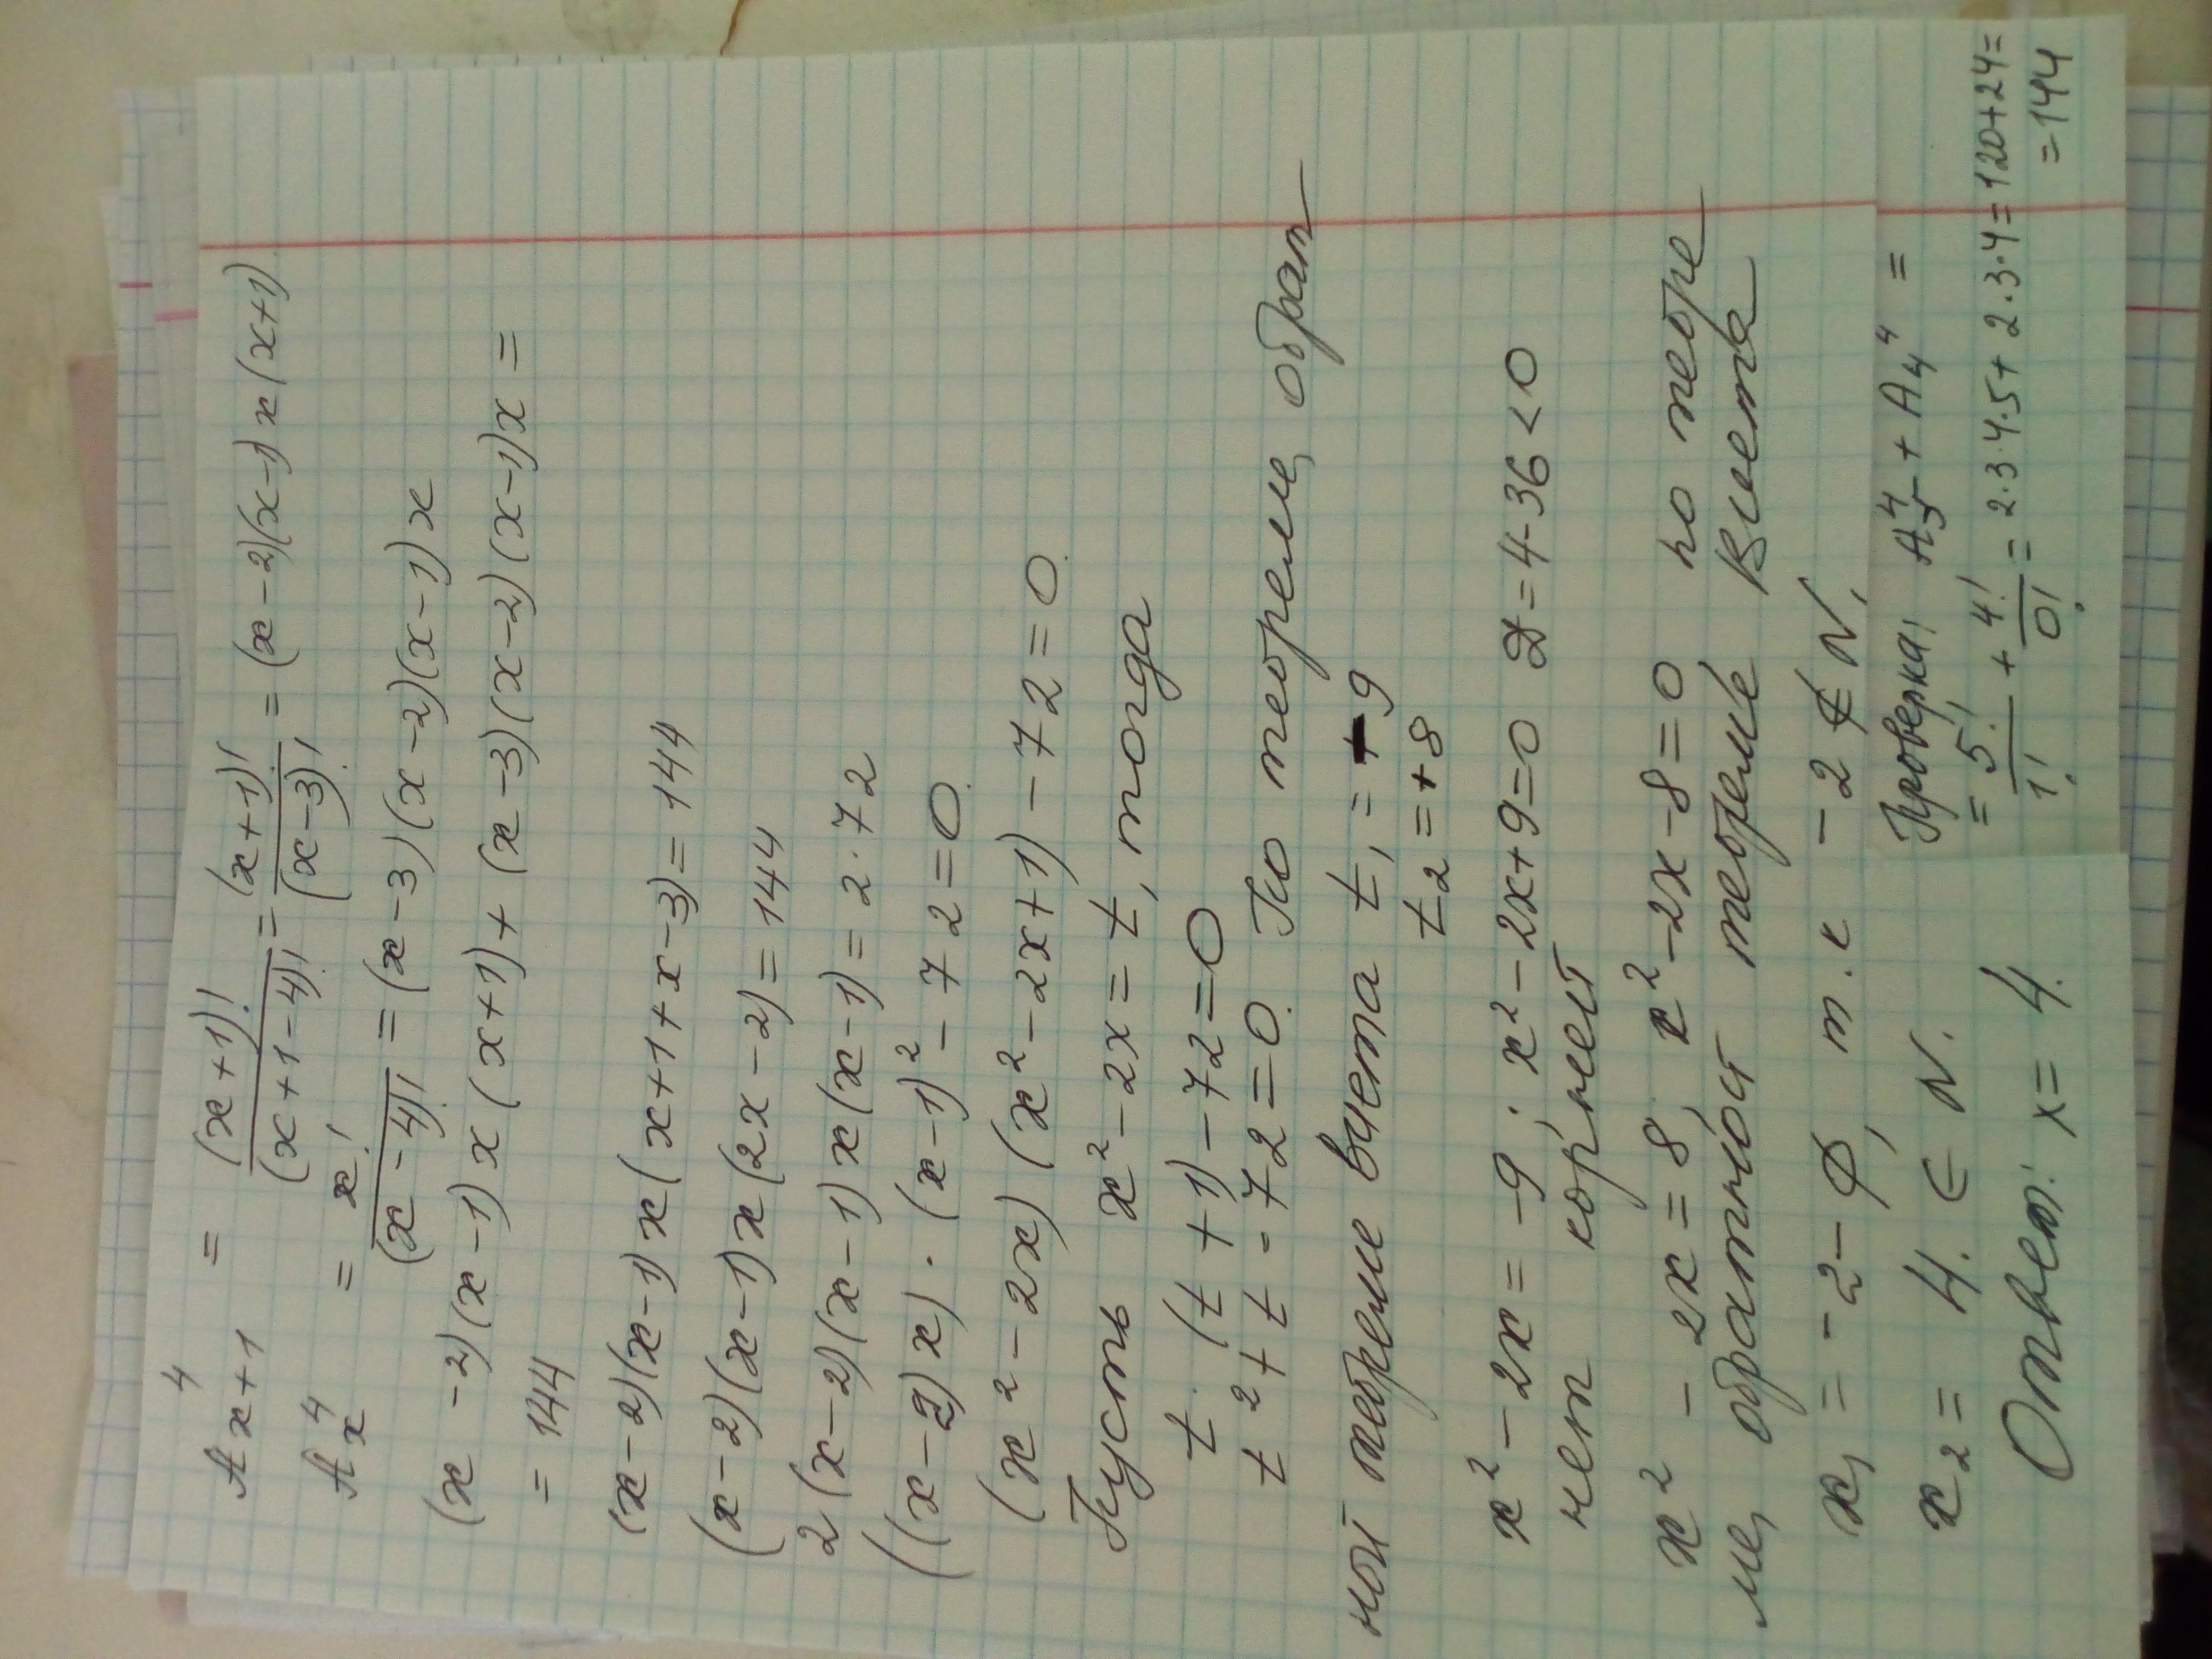 A⁴ₓ₊₁ = (x+1)!/(x+1-4)! = (x+1)!/(x-3)! = (x-2)(x-1)x(x+1)
A⁴ₓ = x!/(x-4)! = (x-3)(x-2)(x-1)x
(x-2)(x-1)x(x+1)+(x-3)(x-2)(x-1)x=
= 144
(x-2)(x-1)x(x+1+x-3)=144
(x-2)(x-1)x(2x-2)=144
2(x-2)(x-1)x(x-1)=2·72
((x-2)x)·(x-1)²-72=0
(x²-2x)(x²-2x+1)-72=0
Пусть x²-2x=t, тогда
t·(t+1)-72=0
t²+t-72=0. По теореме, обрат
ной теореме Виета t₁=-9
t₂=+8
x²-2x=-9; x²-2x+9=0 D=4-36<0
нет корней
x²-2x=8, x²-2x-8=0 по теоре
ме, обратной теореме Виета
x₁=-2-∅, т.к -2∉N,
x₂= 4. ∈ N.
Ответ: x=4.
Проверка: A⁴₅+A₄⁴=
=5!/1!+4!/0!=2·3·4·5+2·3·4=120+24=
=144